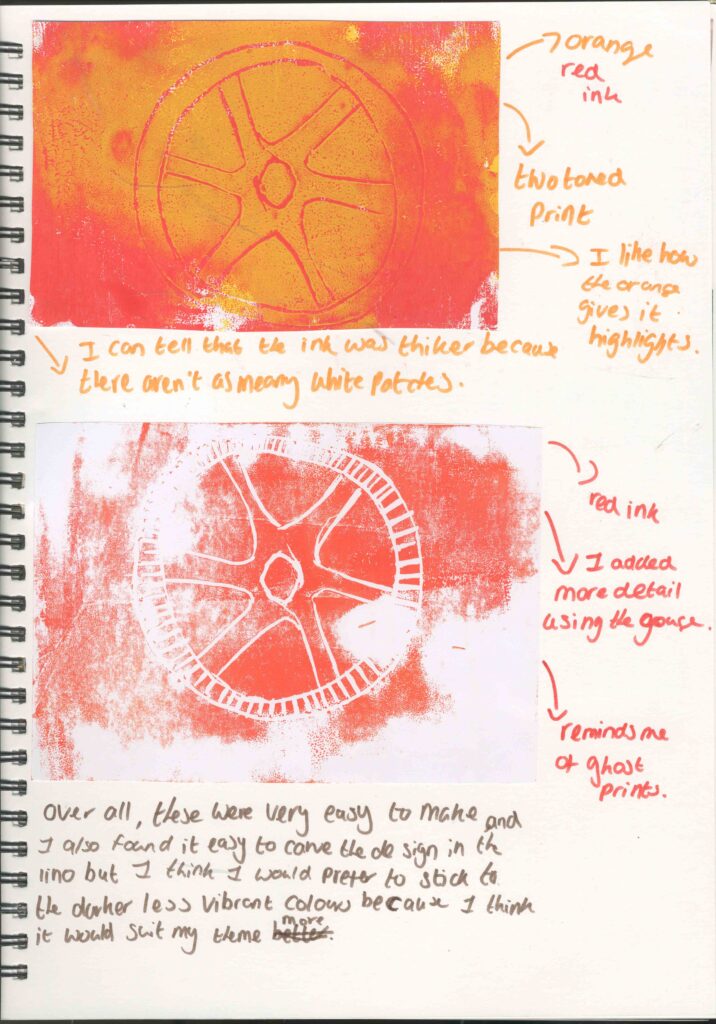 orange
red
ink
two toned
Print
I like how
the orange
gives it
highlights.
I can tell that the ink was thiker because
there aren't as meany white patches.
red ink
I added
more detail
using the gouge.
reminds me
of ghost
prints.
Over all, these were very easy to make and
I also found it easy to carve the de sign in the
lino but I think I would prefer to stick to
the darker less vibrant colours because I think
it would suit my theme better. more